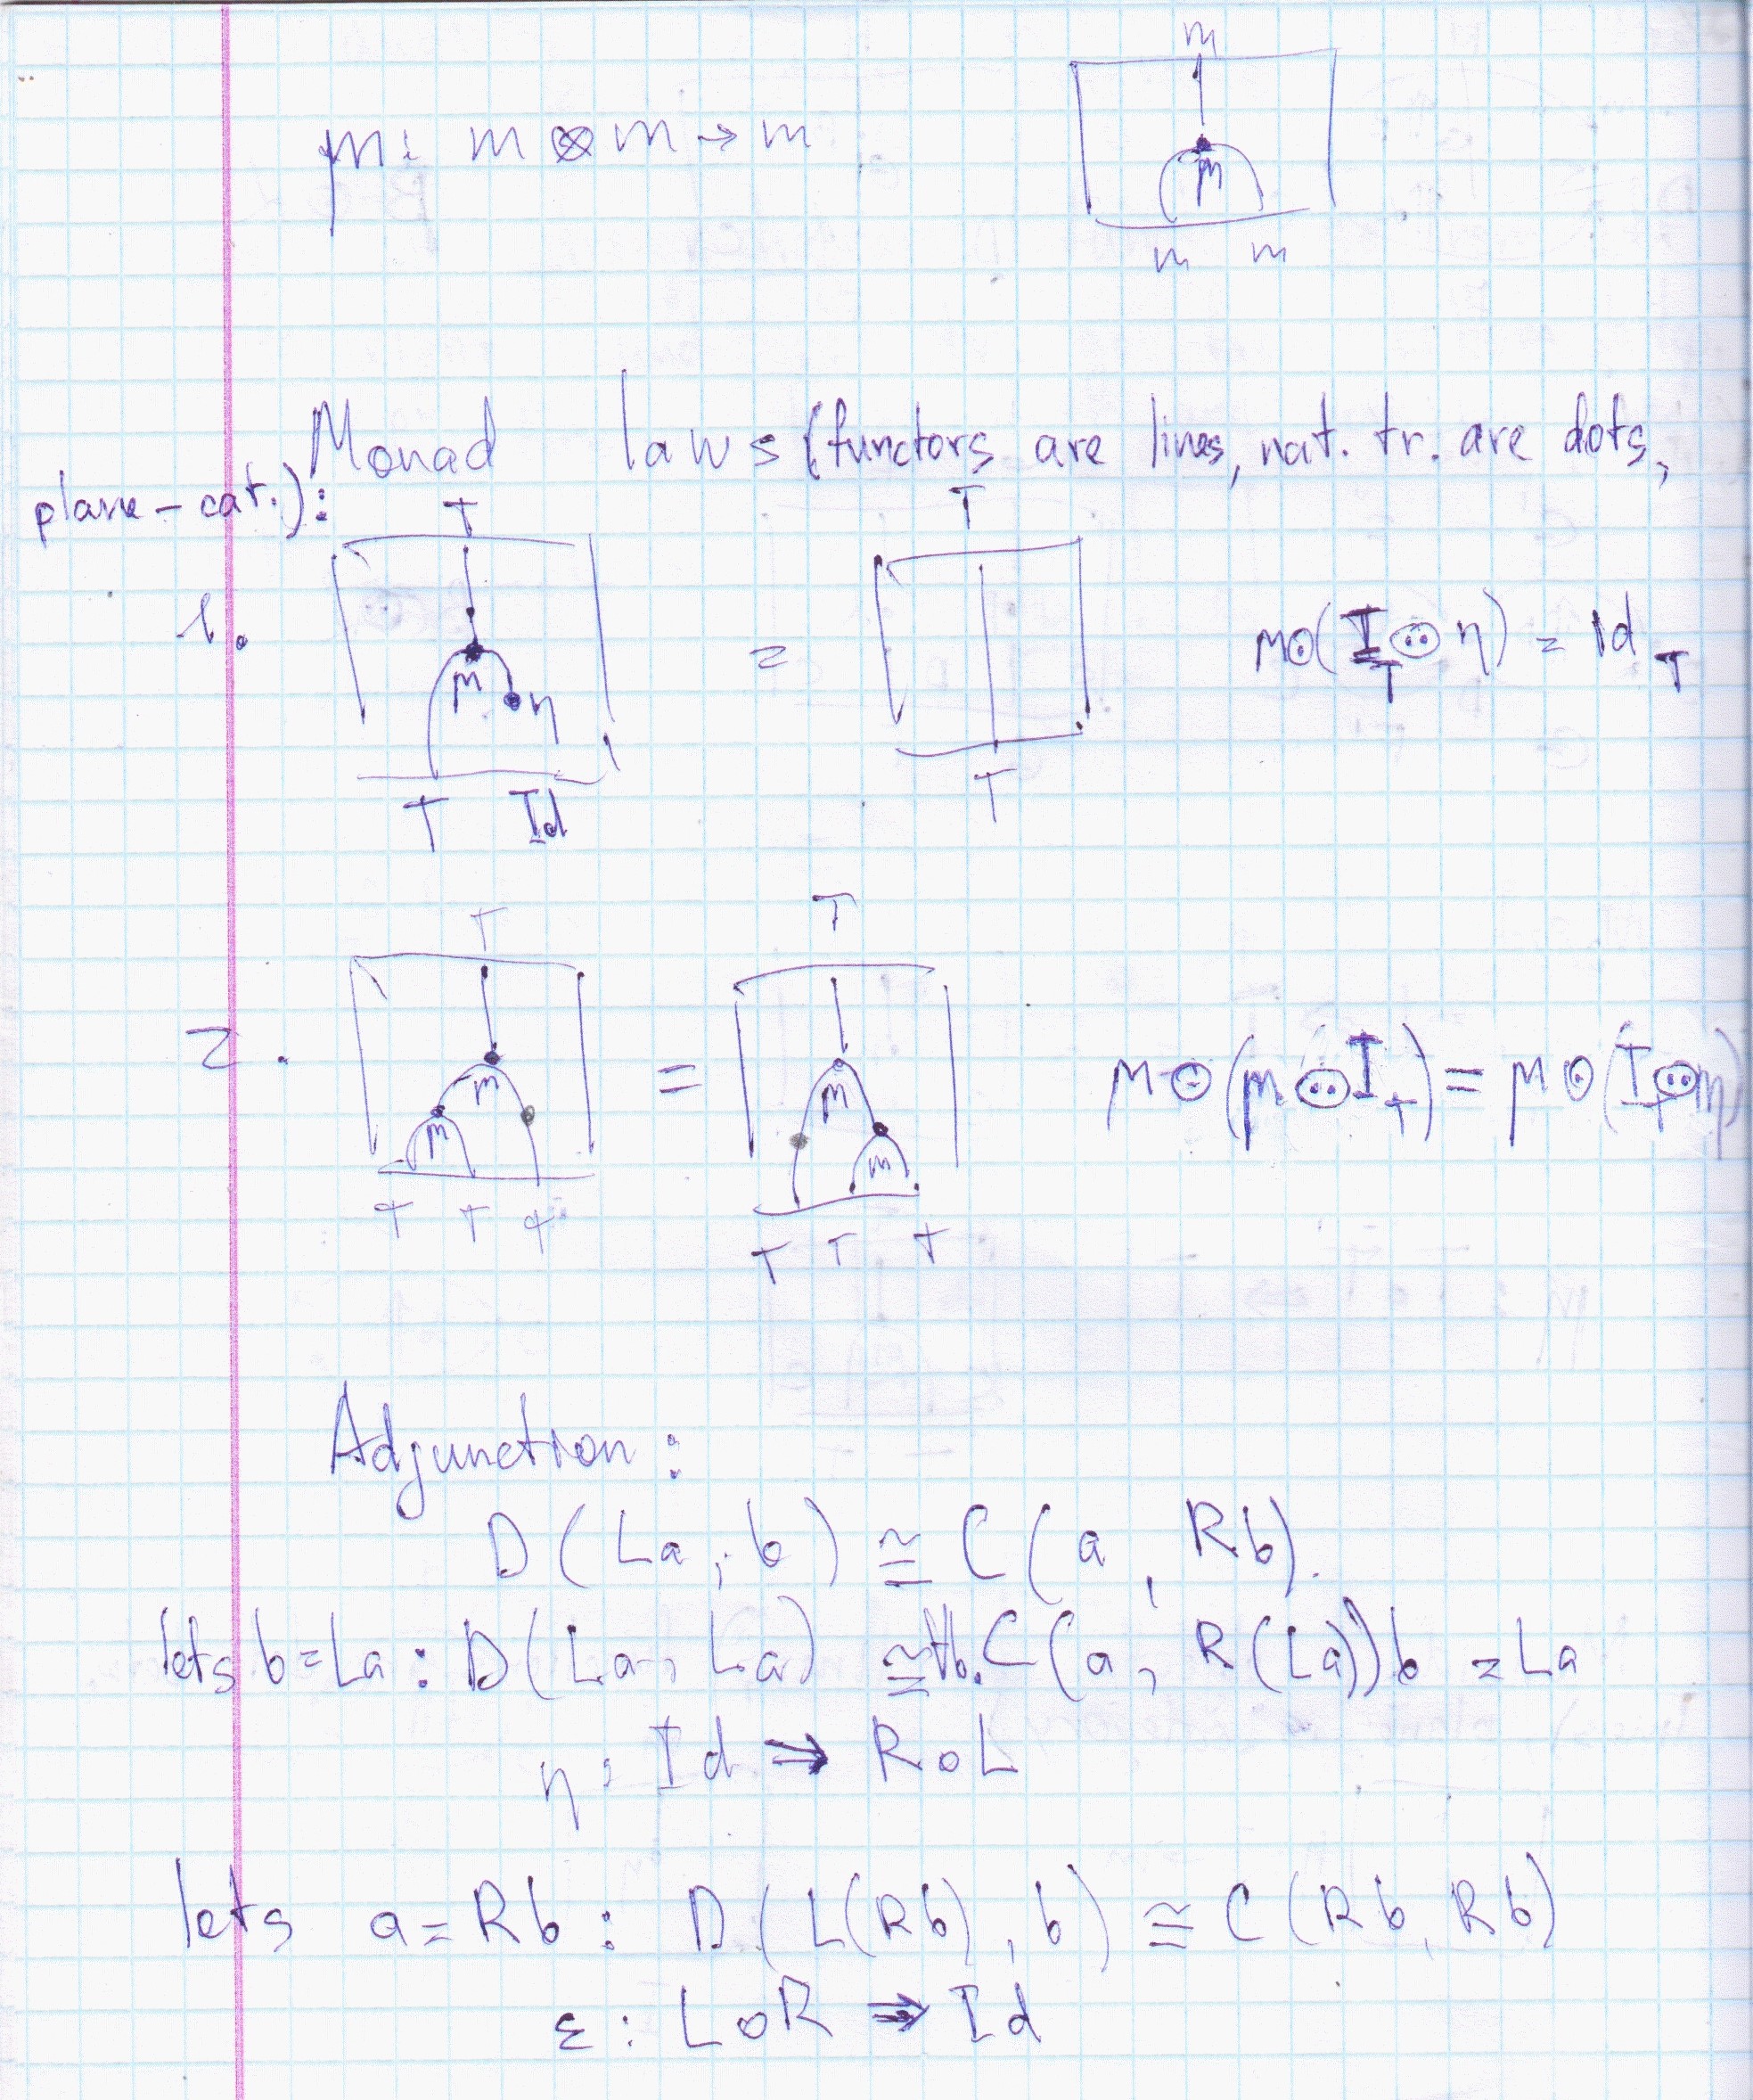 m
μ: m ⊗ m → m
μ
m m
Monad laws (functors are lines, nat. tr. are dots,
plane - cat.):
T T
1. μ η = μ⊙(I_T ⊙ η) = Id_T
T Id T
T T
2. μ μ = μ μ μ⊙(μ ⊙ I_T) = μ⊙(I_T ⊙ μ)
T T T T T T
Adjunction:
D(La, b) ≅ C(a, Rb).
lets b = La : D(La, La) ≅ C(a, R(La)) b = La
η: Id ⇒ R∘L
lets a = Rb : D(L(Rb), b) ≅ C(Rb, Rb)
ε: L∘R ⇒ Id